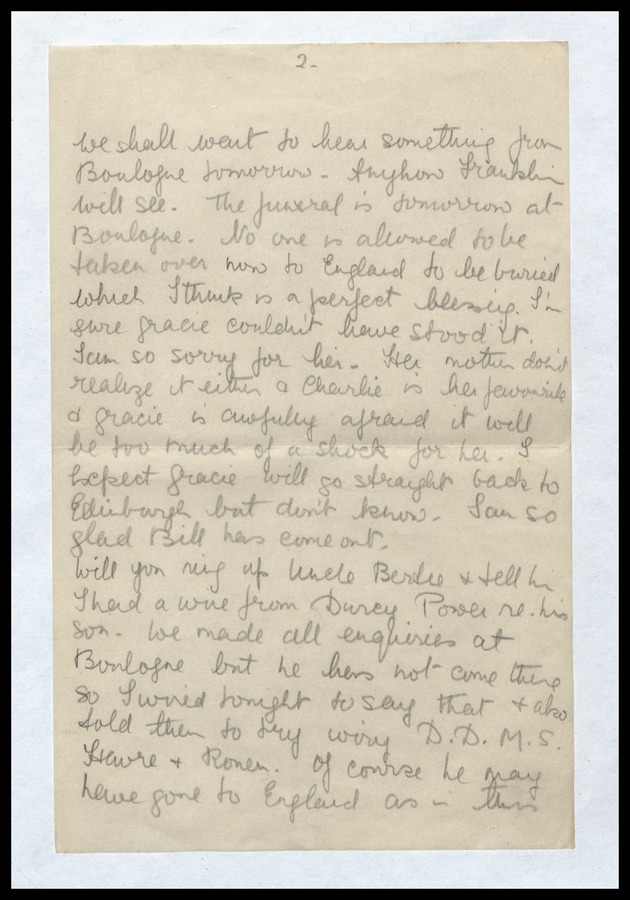 2-
we shall want to hear something from
Boulogne tomorrow - Anyhow Franklin
will see. The funeral is tomorrow at
Boulogne. No one is allowed to be
taken over now to England to be buried
which I think is a perfect blessing. I'm
sure Gracie couldn't have stood it.
I am so sorry for her. Her mother don't
realize it either & Charlie is her favourite
& Gracie is awfully afraid it will
be too much of a shock for her. I
expect Gracie will go straight back to
Edinburgh but don't know. I am so
glad Bill has come out.
Will you ring up Uncle Bertie & tell him
I had a wire from Darcy Power re. his
son. We made all enquiries at
Boulogne but he has not come there
so I wired tonight to say that & also
told them to try wiring D.D.M.S.
Havre & Rouen. Of course he may
have gone to England as in this